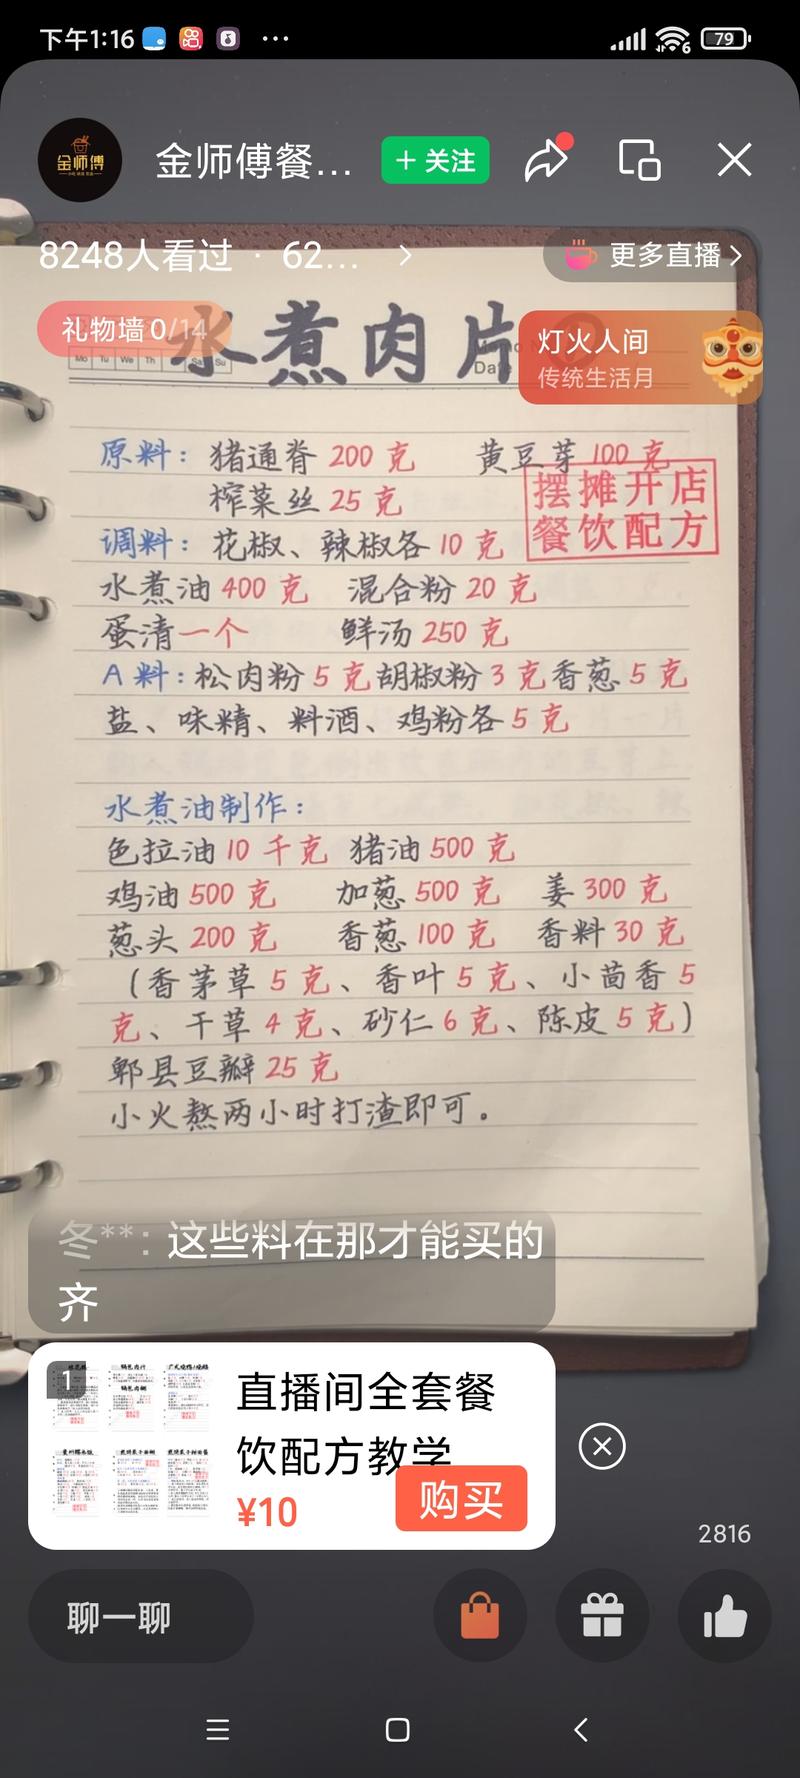 下午1:16
79
金师傅
金师傅餐…
+ 关注
8248人看过 · 62…
更多直播
礼物墙 0/14
水煮肉片
灯火人间
传统生活月
Mo Tu We Th Sa Su
Date
原料：猪通脊 200 克 黄豆芽 100 克
榨菜丝 25 克
摆摊开店
餐饮配方
调料：花椒、辣椒各 10 克
水煮油 400 克 混合粉 20 克
蛋清一个 鲜汤 250 克
A 料：松肉粉 5 克胡椒粉 3 克香葱 5 克
盐、味精、料酒、鸡粉各 5 克
水煮油制作：
色拉油 10 千克 猪油 500 克
鸡油 500 克 加葱 500 克 姜 300 克
葱头 200 克 香葱 100 克 香料 30 克
（香茅草 5 克、香叶 5 克、小茴香 5
克、干草 4 克、砂仁 6 克、陈皮 5 克）
郫县豆瓣 25 克
小火熬两小时打渣即可。
冬**：这些料在那才能买的
齐
1
直播间全套餐
饮配方教学
¥10
购买
2816
聊一聊